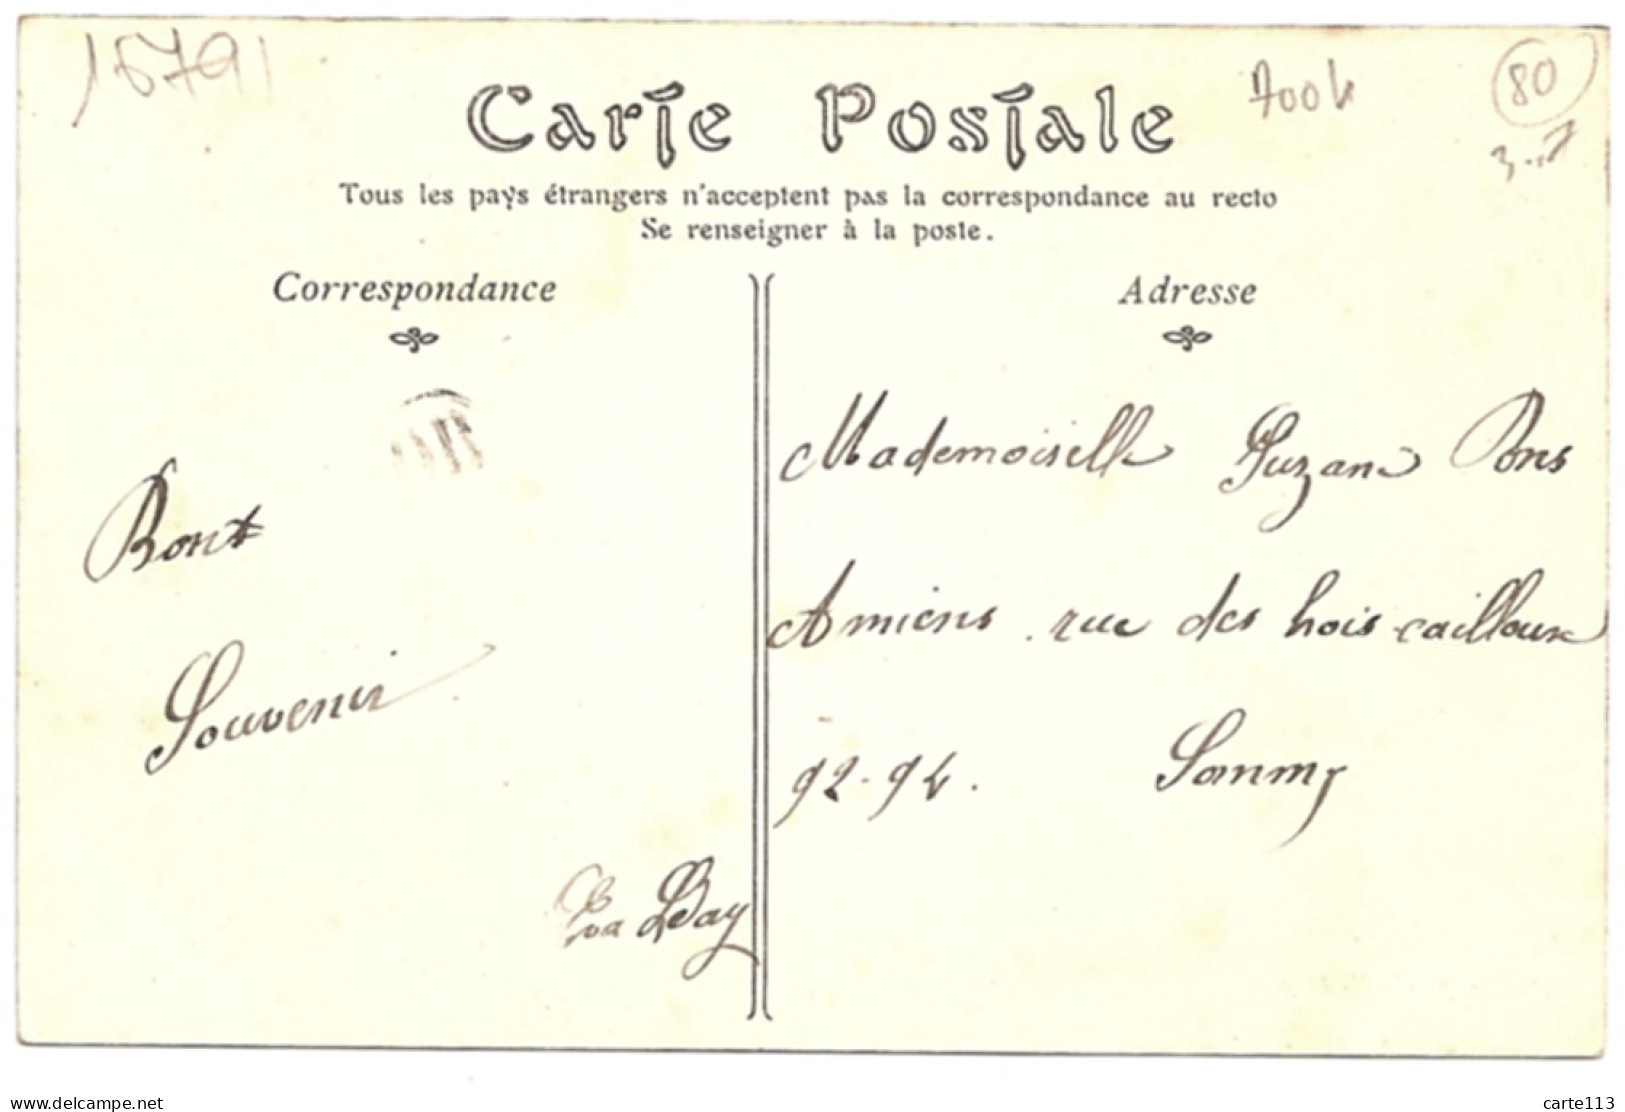 16791
80
Carte Postale
Tous les pays étrangers n'acceptent pas la correspondance au recto
Se renseigner à la poste.
Correspondance
Adresse
Bont
Souvenir
Eva Leday
Mademoiselle Suzane Pons
Amiens rue des hois cailloux
92-94. Somme
www.delcampe.net
carte113